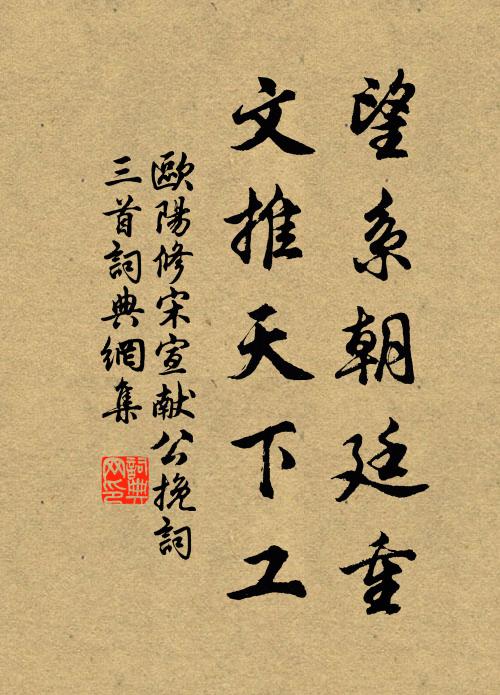 望系朝廷重
文推天下工
歐陽修宋宣献公挽詞
三首詞典網集
詞典
网印